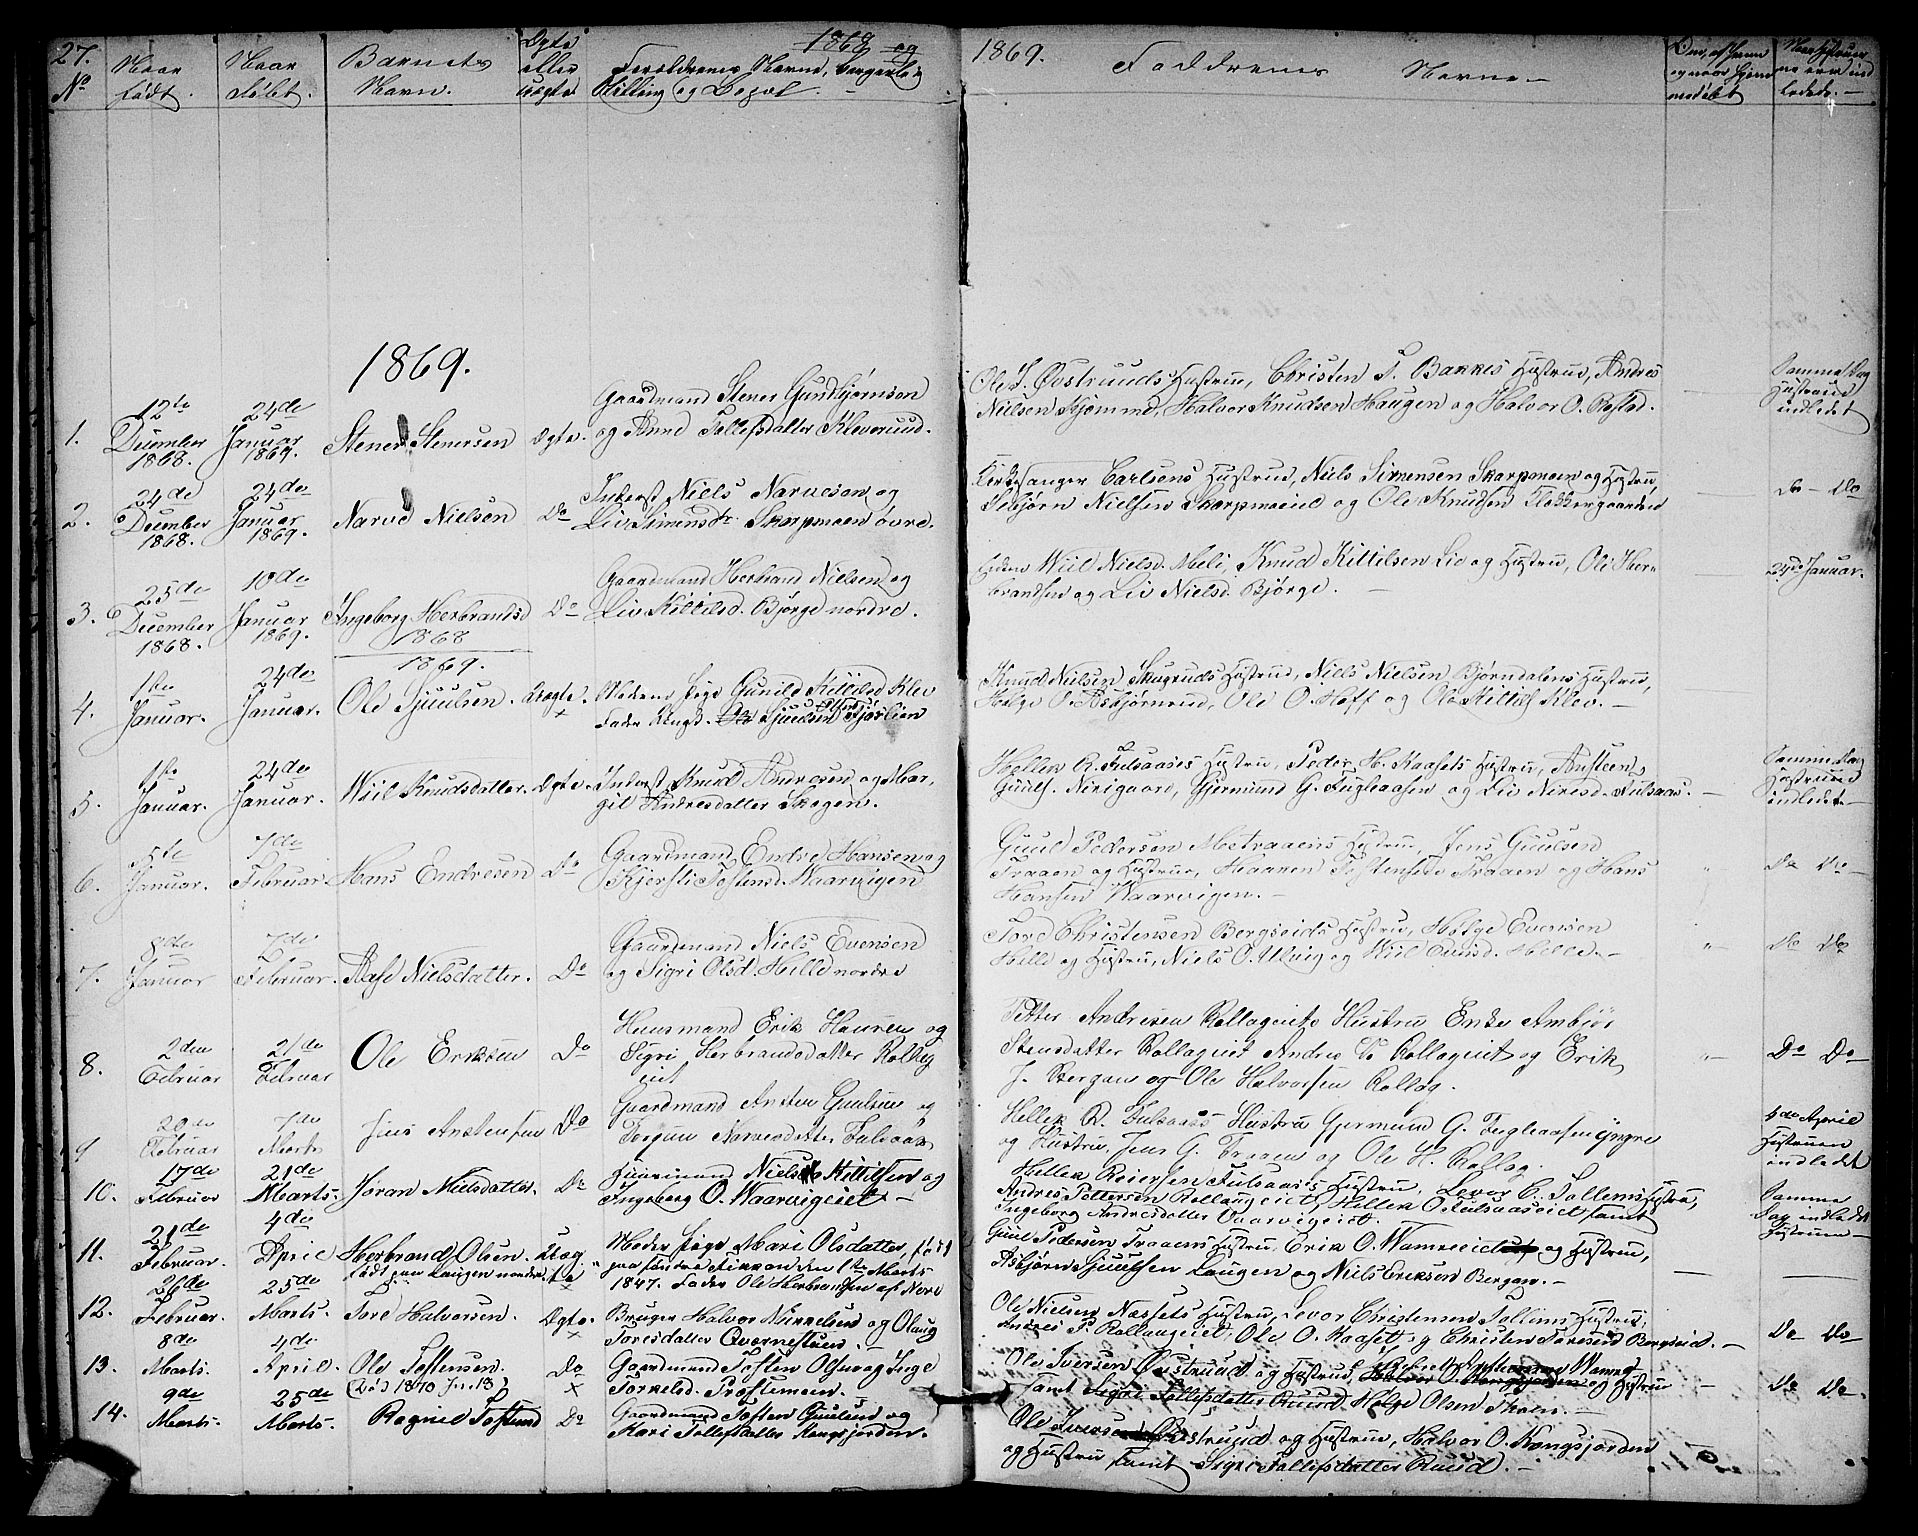 27.
No
Naar født.
Naar døbt.
Barnets Navn.
Ægte eller uægte
1868 og
Forældrenes Navne, borgerlig Stilling og Bopæl.
1869.
Faddrenes Navne
1869.
1. 12te December 1868. 24de Januar 1869. Stener Stenersen Ægte.
Gaardmand Stener Gundbjørnsen
og Anne Tollefsdatter Kleverud.
Ole I. Øvstruds Hustrue, Christen T. Bakkes Hustrue, Andres
Nielsen Hjømme, Halvor Knudsen Haugen og Halvor O. Rostad.
Samme Dag Hustruen indledet
2. 24de December 1868. 24de Januar 1869. Narve Nielsen Do
Inderst Niels Narvesen og
Liv Simensdr. Skarpmoen øvre.
Kirkesanger Carlsens Hustrue, Niels Simensen Skarpmoen og Hustru,
Nielsen Skarpmoeie og Ole Knudsen Klokkergaarden
Do Do
3. 25de December 1868. 10de Januar 1869. Ingeborg Herbrandsd
1868
Do
Gaardmand Herbrand Nielsen og
Liv Kittilsd. Bjørge nordre.
Wiil Nielsd. Meli, Knud Kittilsen Lie og Hustrue, Ole Her-
brandsen og Liv Nielsd. Bjørge.
24de Januar.
1869.
4. 1ste Januar. 24de Januar. Ole Sjuulsen. Uægte.
Moderen Pige Gunild Kittilsd Klev
Fader Ungk. Sjuulsen Bjørlien
Knud Nielsen Skugruds Hustrue, Niels Nielsen Bjørndalens Hustrue,
Helge O. Asbjørnrud, Ole O. Hoff og Ole Kittils. Klev.
5. 1ste Januar. 24de Januar. Wiil Knudsdatter. Ægte.
Inderst Knud Andresen og Mar-
git Andresdatter Skogen.
Hellek R. Fulsaases Hustru, Peder H. Kaasets Hustrue, Ansteen
Guuls. Nerigaard, Gjermund G. Fugleaasen og Liv Niresd. Fulsaas.
Samme Dag Hustruen indledet
6. 5te Januar. 7de Februar. Hans Endresen Do
Gaardmand Endre Hansen og
Kjersti Tostensd. Waarvigen
Guul Pedersen Metraaens Hustrue, Jens Guulsen
Traaen og Hustrue, Haaken Tostensen Traaen og Hans
Hansen Waarvigen.
Do Do
7. 8de Januar 7de Februar. Aase Nielsdatter. Do
Gaardmand Niels Evensen
og Sigri Olsd. Helle nordre
Tore Christensen Bergseids Hustrue, Helge Evensen
Helle og Hustrue, Niels O. Ulvig og Wiil Evensd. Helle.
Do Do
8. 2den Februar 21de Februar Ole Eriksen Do
Huusmand Erik Hansen og
Sigri Herbrandsdatter Rollag
eiet
Petter Andresen Rollageiets Hustru Enke Ambjør
Stensdatter Rollageiet Andres Rollageiet og Erik
J. Bergan og Ole Halvorsen Rollag.
Do Do
9 20de Februar 7de Marts Jens Anstensen Do
Gaardmand Ansten Guulsen og
Torgun Narvesdatter Fulsaas
Hellek R. Fulsaas's Hustru Gjermund G. Fugleaasen yngre
og Hustru, Jens G. Traaen og Ole H. Rollag.
4de April Hustruen indledet
10. 17de Februar 21de Marts. Jøran Nielsdatter. Do
Huusmand Niels Kittilsen og
Ingeborg O. Waarvigeiet
Hellek Reiersen Fulsaases Hustrue, Levor C. Tollems Hustru,
Andres Pettersen Rollaugeiet, Hellek O. Fulsaaseiet samt
Ingeborg Andresdatter Vaarvigeiet.
Samme Dag indledet Hustruen
11. 21de Februar. 4de April Herbrand Olsen.
født paa Laugen nordre
Uægte
Moder Pige Mari Olsdatter, født
paa søndre Fikkan den 1ste Marts
1847. Fader Ole Herbrandsen af Nore
Guul Pedersen Traaens Hustru, Erik O. Wamreeiet og Hustrue,
Asbjørn Gjuulsen Laugen og Niels Eriksen Bergan.
12. 26de Februar. 25de Marts. Tore Halvorsen. Ægte.
Bruger Halvor Mikkelsen og Olaug
Toresdatter Qvernestuen.
Ole Nielsen Næssets Hustru, Levor Christensen Tollems Hustrue;
Andres P. Rollaugeiet, Ole O. Kaaset og Christen Toresen Bergseid.
Do Do
13. 8de Marts. 4de April. Ole Tostensen.
(Død 1870)
Do
Gaardmand Tosten Olsen og Inge
Torkelsd. Præstemoen.
Ole Iversen Øvstruud og Hustrue, og Hustrue
samt Sigri Tollefsdatter Ruud, Helge Olsen
Do Do
14. 9de Marts. 25de Marts. Ragnil Tostensd Do
Gaardmand Tosten Guulsen og
Kari Tollefsdatter Kongsjorden.
Ole Iversen Øvstruud og Hustrue, Halvor O. Kongsjorden
og Hustru samt Sigri Tollefsdatter Ruud.